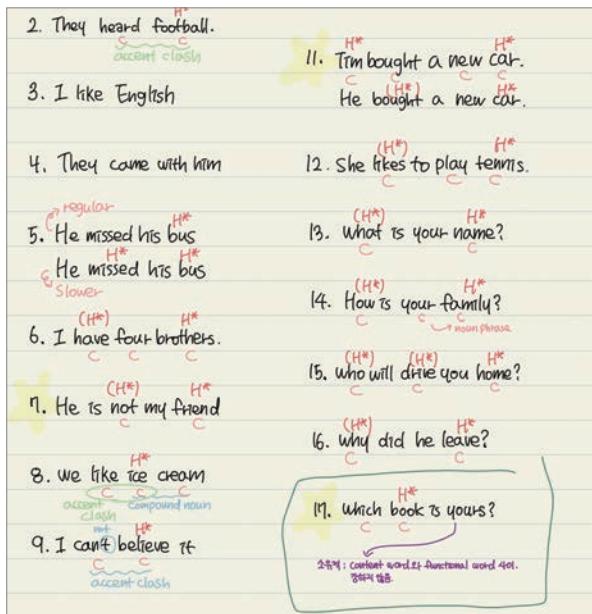 2. They heard football.
H*
C C
accent clash
3. I like English
4. They came with him
regular
5. He missed his bus
H*
He missed his bus
H* H*
Slower
6. I have four brothers.
(H*) H*
C C C
7. He is not my friend
(H*) H*
C C
8. we like ice cream
H*
C C C
accent clash
compound noun
not
9. I can't believe it
H*
C C
accent clash
11. Tim bought a new car.
H* H*
C C C C
He bought a new car.
(H*) H*
12. She likes to play tennis.
(H*) H*
C C C
13. what is your name?
(H*) H*
C C
14. How is your family?
(H*) H*
C C C
noun phrase
15. who will drive you home?
(H*) (H*) H*
C C C
16. why did he leave?
(H*) H*
C C
17. which book is yours?
H*
C C
소유격 : Content word와 functional word 사이.
강하지 않음.